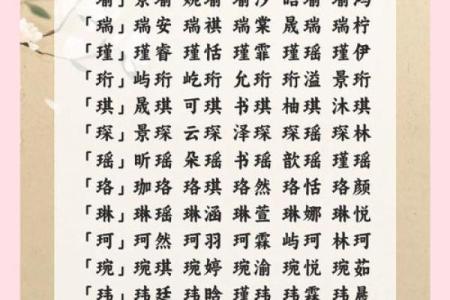 「瑞」瑞安 瑞祺 瑞棠 晟瑞 瑞柠
「瑾」瑾睿 瑾恬 瑾霏 瑾瑶 瑾伊
「珩」屿珩 屹珩 允珩 珩溢 景珩
「琪」晟琪 可琪 书琪 柚琪 沐琪
「琛」景琛 云琛 泽琛 琛瑶 琛林
「瑶」昕瑶 朵瑶 书瑶 歆瑶 瑾瑶
「珞」珈珞 珞琪 珞然 珞恬 珞颜
「琳」琳瑶 琳涵 琳萱 琳娜 琳悦
「珂」珂然 珂羽 珂霖 屿珂 林珂
「琬」琬琪 琬婷 琬渝 琬悦 琬茹
「玮」玮廷 玮晗 瑾玮 玮霖 玮晨